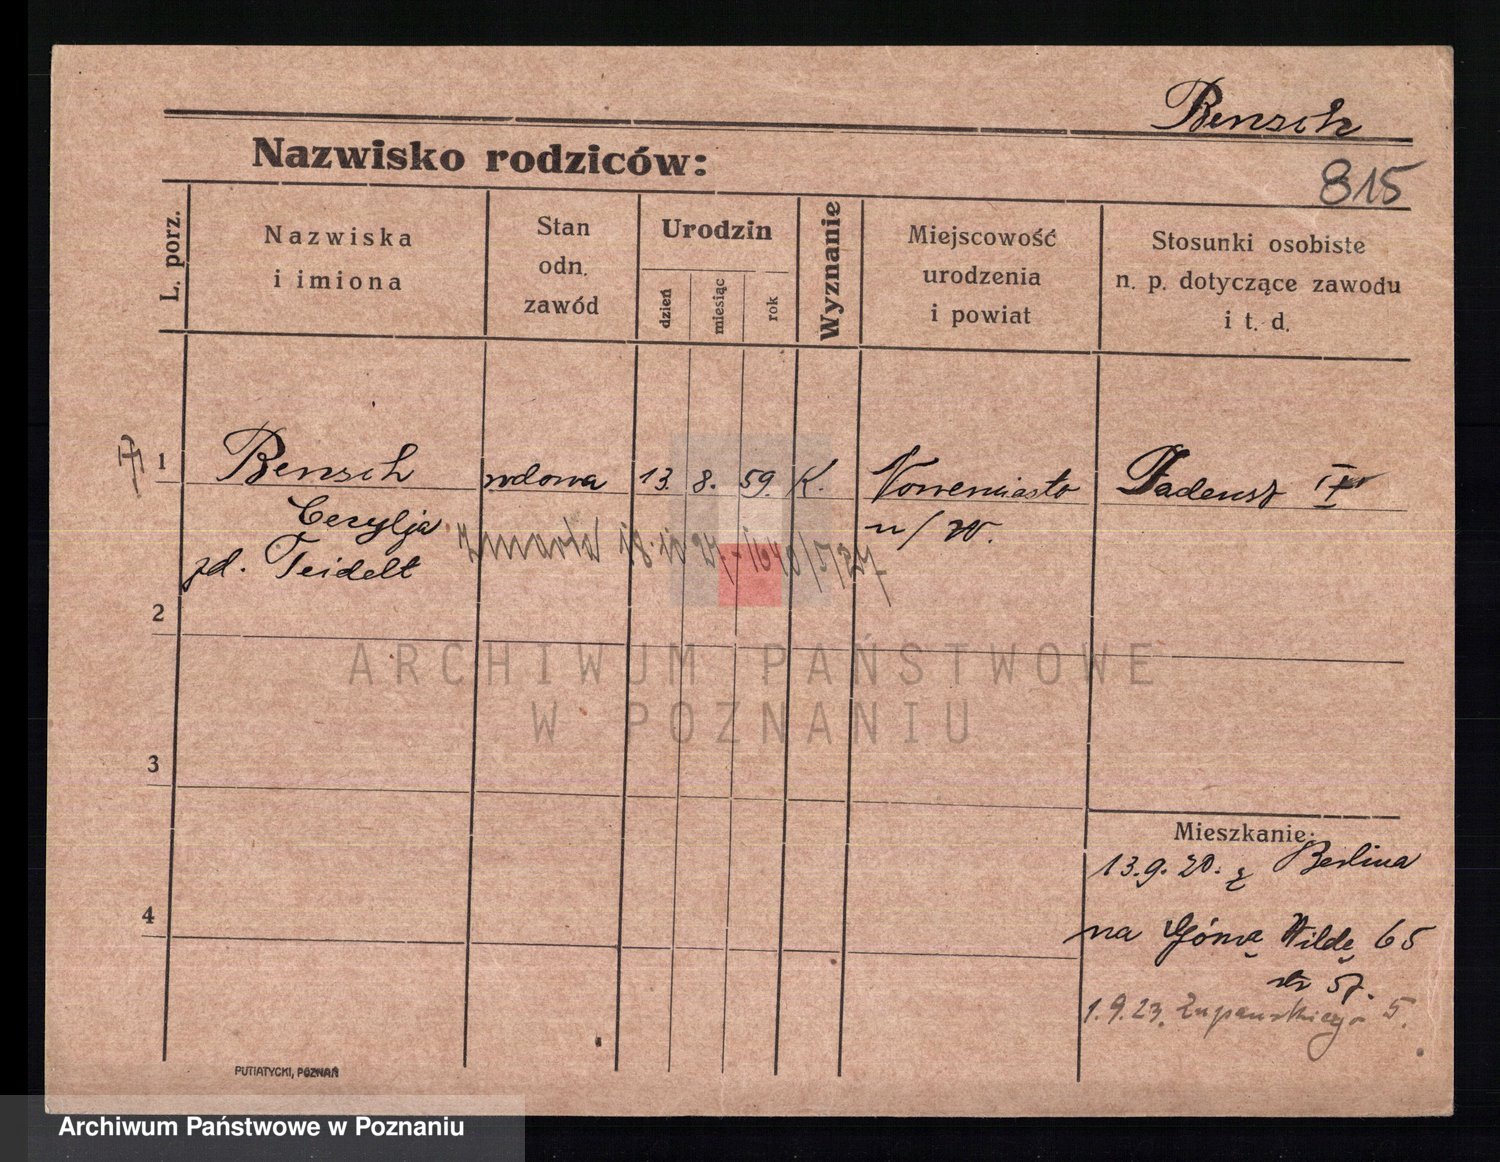 Bensch
Nazwisko rodziców:
815
L. porz.
Nazwiska
i imiona
Stan
odn.
zawód
Urodzin
dzień
miesiąc
rok
Wyznanie
Miejscowość
urodzenia
i powiat
Stosunki osobiste
n. p. dotyczące zawodu
i t. d.
1 Bensch wdowa 13. 8. 59. K. Nowemiasto Tadeusz
Cecylja
n/W.
zd. Teidelt
2
ARCHIWUM PAŃSTWOWE
W POZNANIU
3
Mieszkanie:
13.9.20. z Berlina
4
na Górną Wildę 65
57.
1.9.23. Żupańskiego 5.
PUTIATYCKI, POZNAŃ
Archiwum Państwowe w Poznaniu